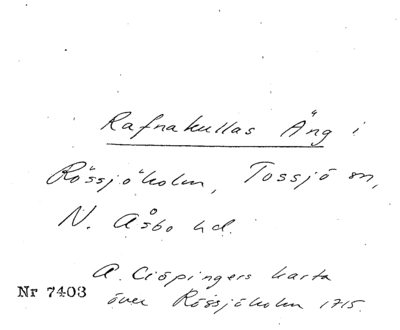 Rafnakullas Äng i
Rössjöholm, Tossjö sn,
N. Åsbo hd.
A. Ciöpingers karta
Nr 7403
över Rössjöholm 1715.